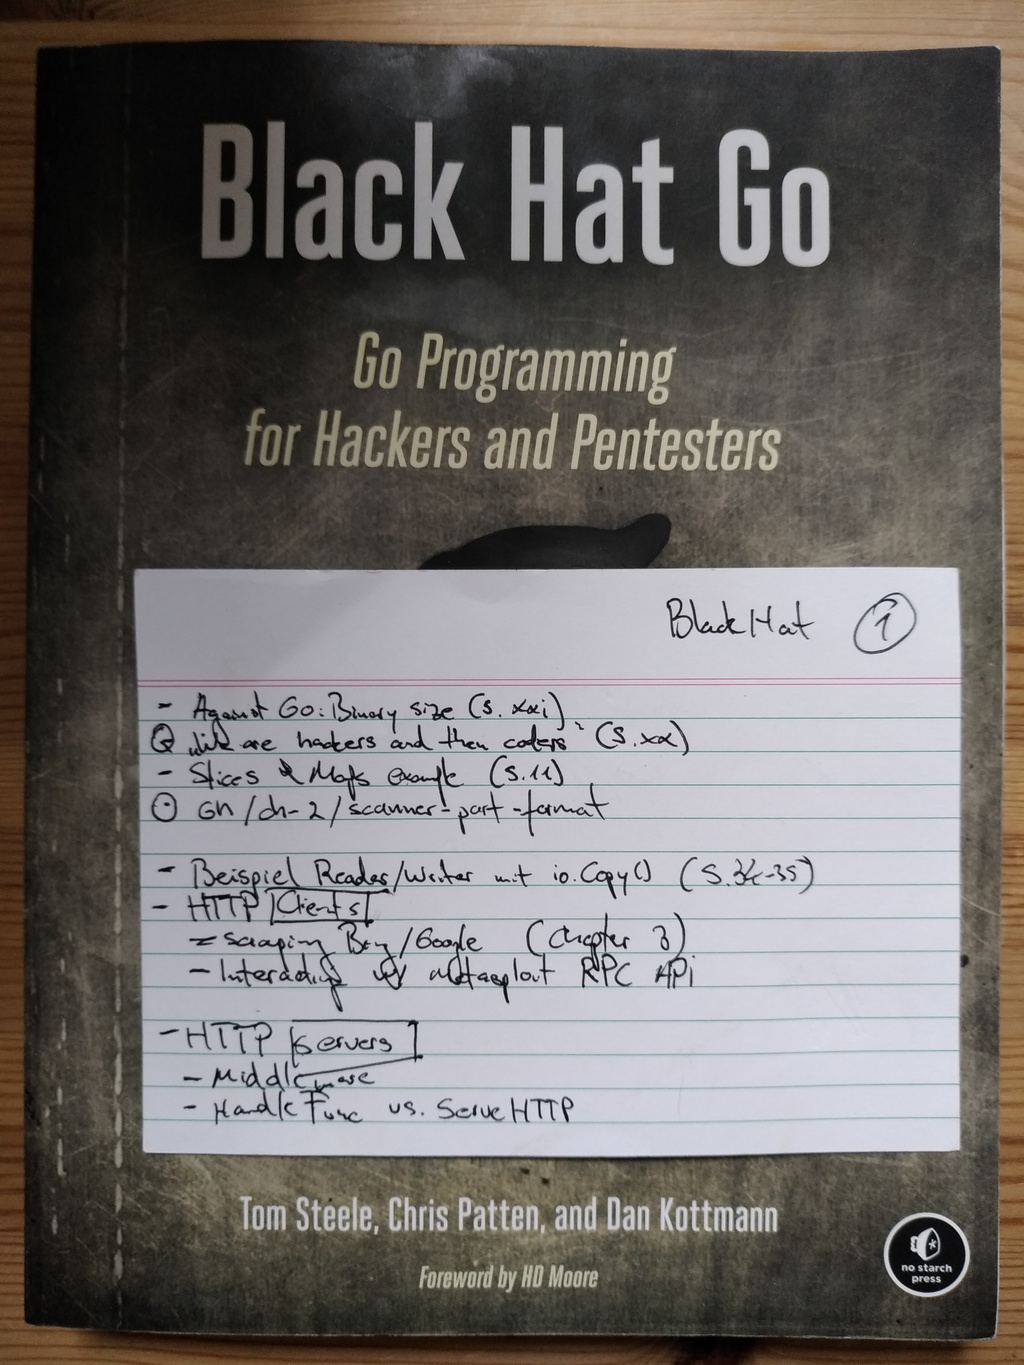 Black Hat Go
Go Programming
for Hackers and Pentesters
BlackHat 1
- Against Go: Binary size (S. xxi)
Q „We are hackers and then coders“ (S. xx)
- Slices & Maps example (S. 11)
GH/ch-2/scanner-port-format
- Beispiel Reader/Writer mit io.Copy() (S. 34-35)
- HTTP Clients
- Scraping Bing/Google (Chapter 3)
- Interacting w/ Metasploit RPC API
- HTTP Servers
- Middleware
- HandleFunc vs. ServeHTTP
Tom Steele, Chris Patten, and Dan Kottmann
Foreword by HD Moore
no starch
press